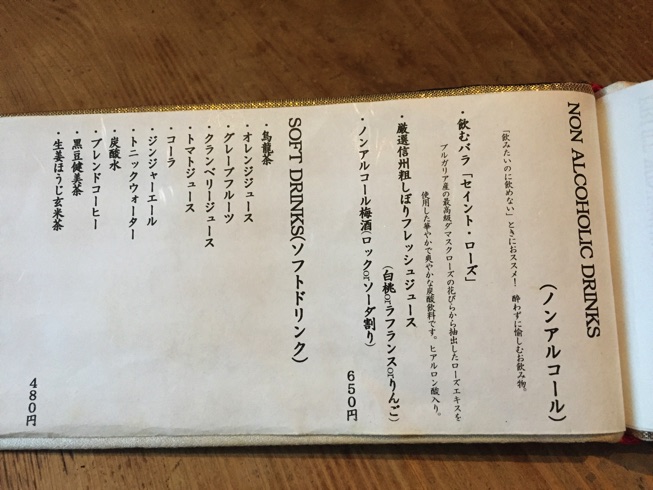 NON ALCOHOLIC DRINKS
(ノンアルコール)
「飲みたいのに飲めない」ときにおススメ！ 酔わずに愉しむお飲み物。
・飲むバラ「セイント・ローズ」
ブルガリア産の最高級ダマスクローズの花びらから抽出したローズエキスを
使用した華やかで爽やかな炭酸飲料です。ヒアルロン酸入り。
・厳選信州粗しぼりフレッシュジュース
(白桃orラフランスorりんご)
・ノンアルコール梅酒(ロックorソーダ割り)
650円
SOFT DRINKS(ソフトドリンク)
・烏龍茶
・オレンジジュース
・グレープフルーツ
・クランベリージュース
・トマトジュース
・コーラ
・ジンジャーエール
・トニックウォーター
・炭酸水
・ブレンドコーヒー
・黒豆健美茶
・生姜ほうじ玄米茶
480円